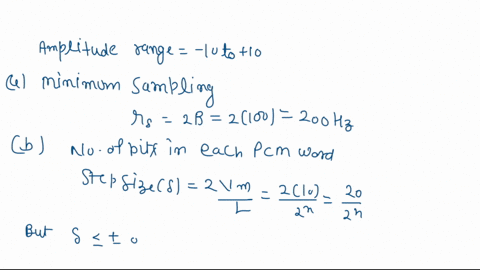 Amplitude range = -10 to +10
(a) minimum sampling
rs = 2B = 2(100) = 200Hz
(b) No. of bits in each Pcm word
Step size(δ) = 2Vm/L = 2(10)/2^n = 20/2^n
But δ ≤ ± 0